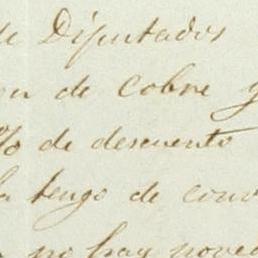 de Diputados
de cobre y
% de descuento
la tengo de conv
no hay noved